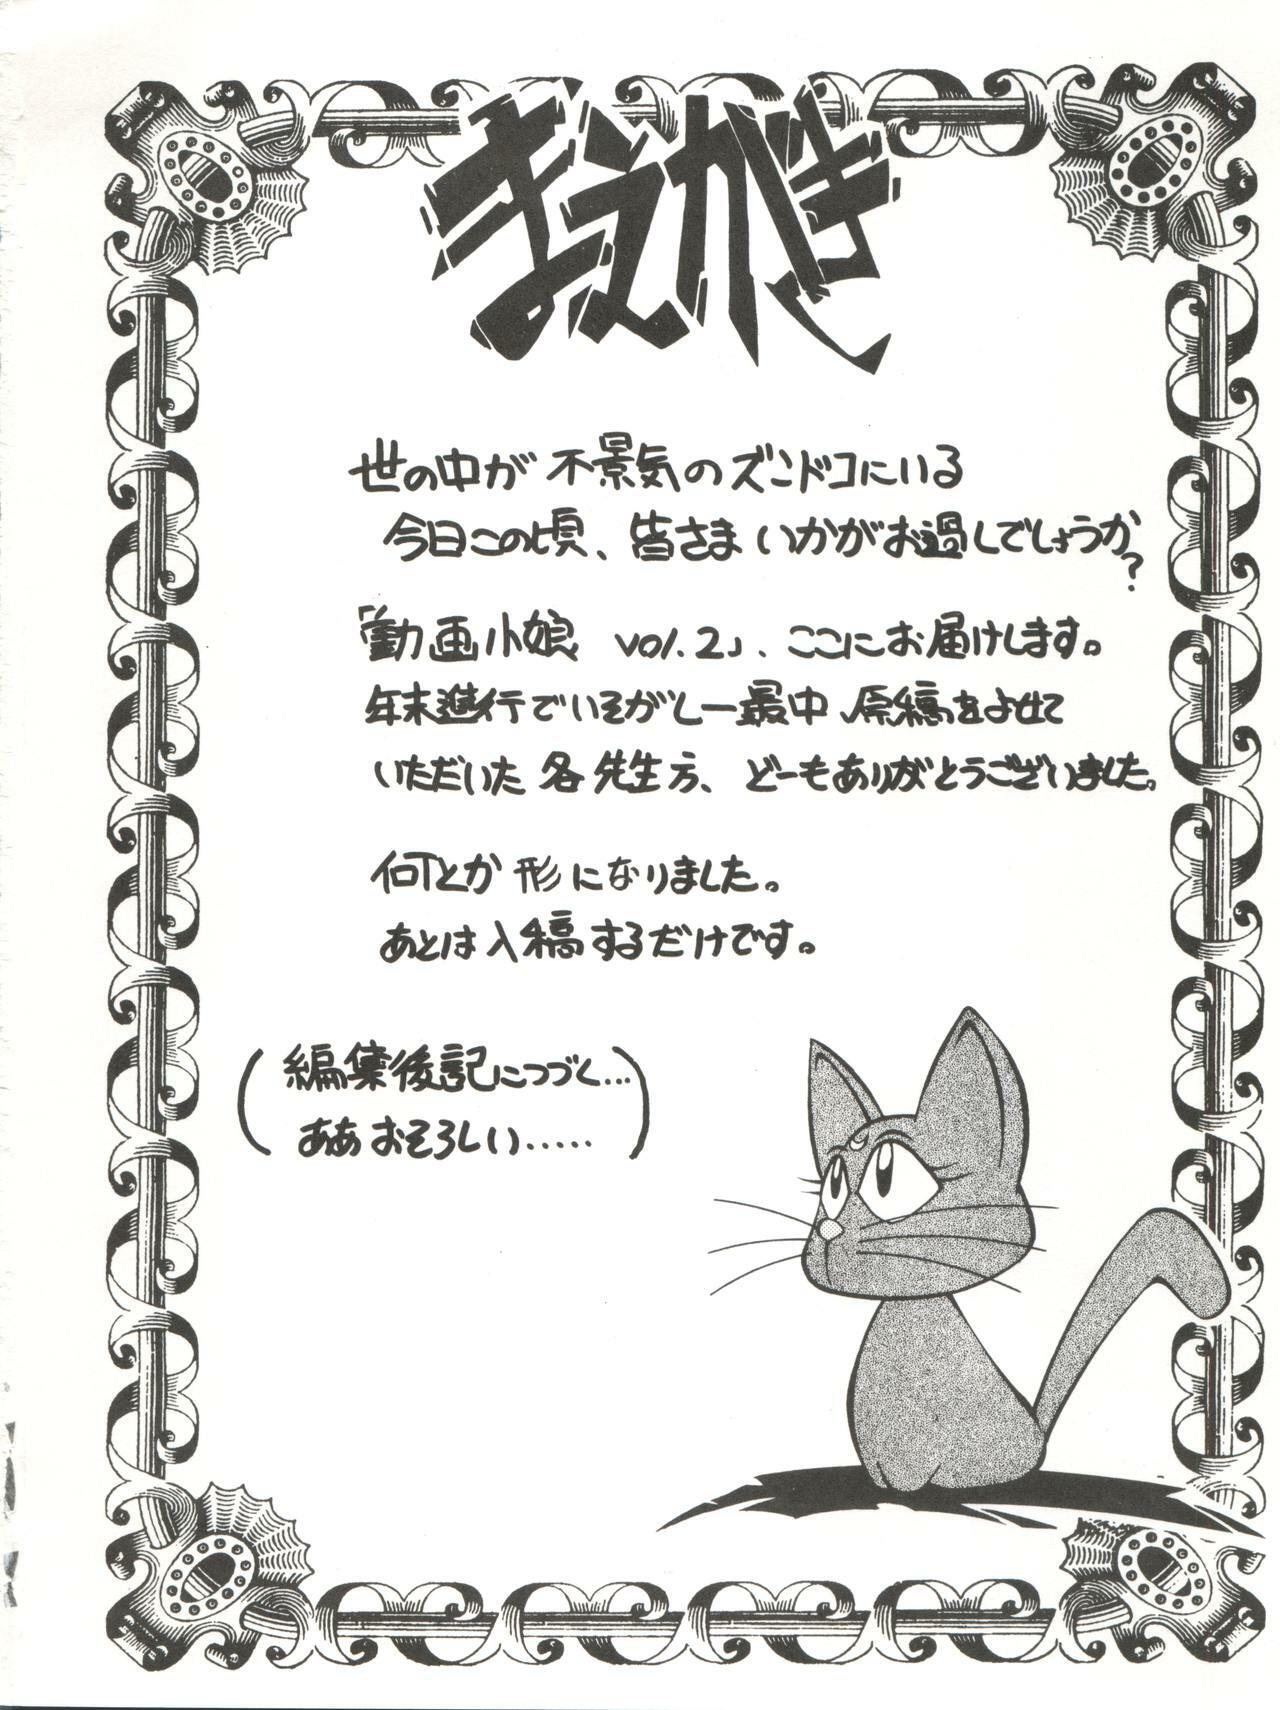 まえがき
世の中が不景気のズンドコにいる
今日この頃、皆さまいかがお過しでしょうか?
「動画小娘 vol.2」、ここにお届けします。
年末進行でいそがしー最中原稿をよせて
いただいた各先生方、どーもありがとうございました。
何とか形になりました。
あとは入稿するだけです。
(編集後記につづく…
ああおそろしい.....)